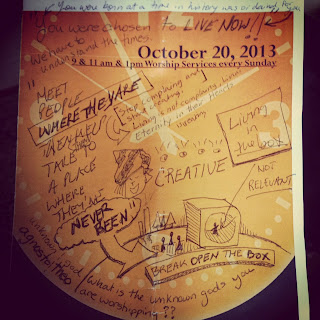 You were born at a time in history
You were chosen to LIVE NOW!!
we have to
understand the times.
October 20, 2013
9 & 11 am & 1pm Worship Services every Sunday
"MEET
PEOPLE
WHERE THEY ARE
TAKE TO
A PLACE
WHERE
NEVER
BEEN"
Stop complaining and
Start creating.
Eternity in their Hearts
Living
in
the box
CREATIVE
NOT
RELEVANT
BREAK OPEN THE BOX
unknown god
agnosto theo
what is the unknown gods you
are worshipping??